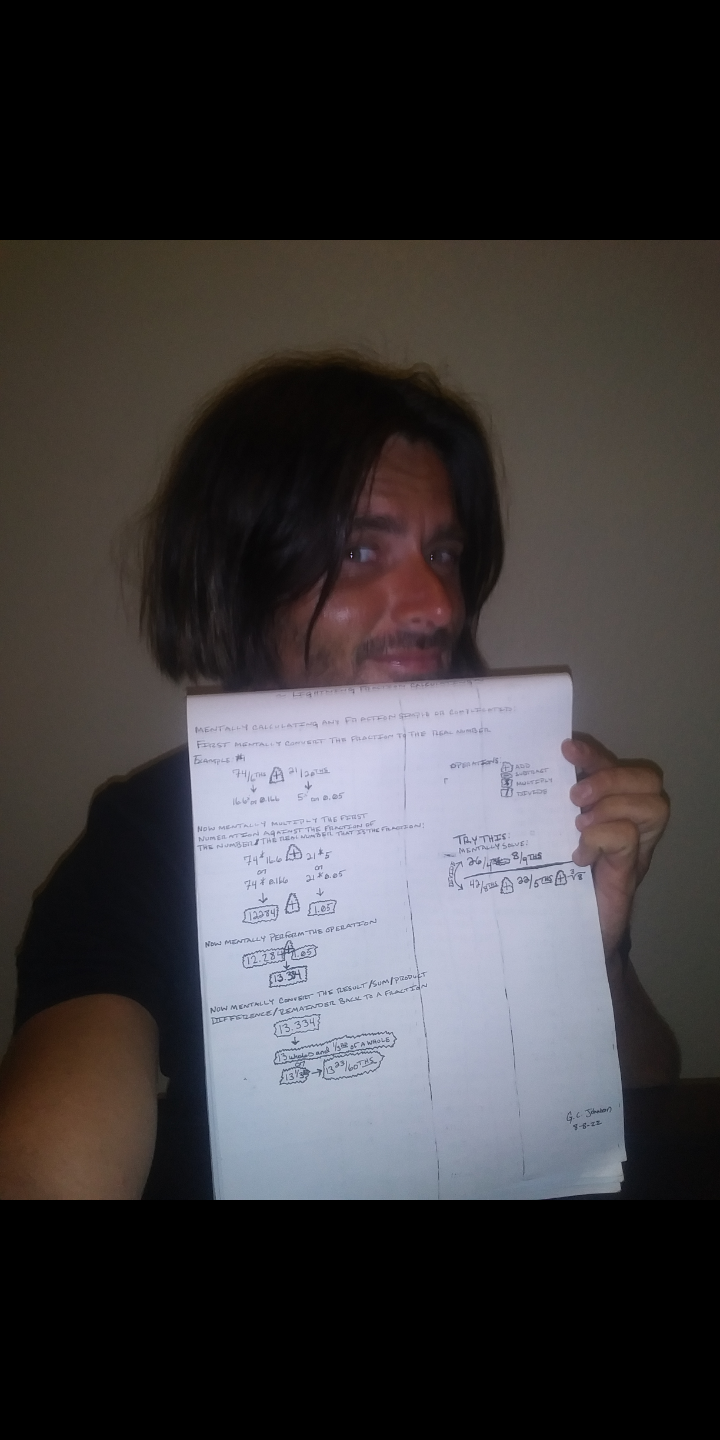 ~ LIGHTNING FRACTION CALCULATING ~
MENTALLY CALCULATING AND FRACTION SIMPLE OR COMPLICATED:
FIRST MENTALLY CONVERT THE FRACTION TO THE REAL NUMBER
EXAMPLE #1
74/6THS + 21/20THS
166 or 0.166 5 or 0.05
NOW MENTALLY MULTIPLY THE FIRST
NUMERATION AGAINST THE FRACTION OF
THE NUMBER/THE REAL NUMBER THAT IS THE FRACTION:
74 * 166 + 21 * 5
or or
74 * 0.166 21 * 0.05
12284 + 1.05
NOW MENTALLY PERFORM THE OPERATION
12.284 + 1.05
13.334
NOW MENTALLY CONVERT THE RESULT/SUM/PRODUCT
DIFFERENCE/REMAINDER BACK TO A FRACTION
13.334
13 WHOLES AND 1/3RD OF A WHOLE
or
13 1/3 → 13 23/60THS
OPERATIONS
+ ADD
- SUBTRACT
* MULTIPLY
/ DIVIDE
TRY THIS:
MENTALLY SOLVE:
26/4THS 8/9THS
42/8THS + 22/5THS + ∛8
G.C. Johnson
8-8-22